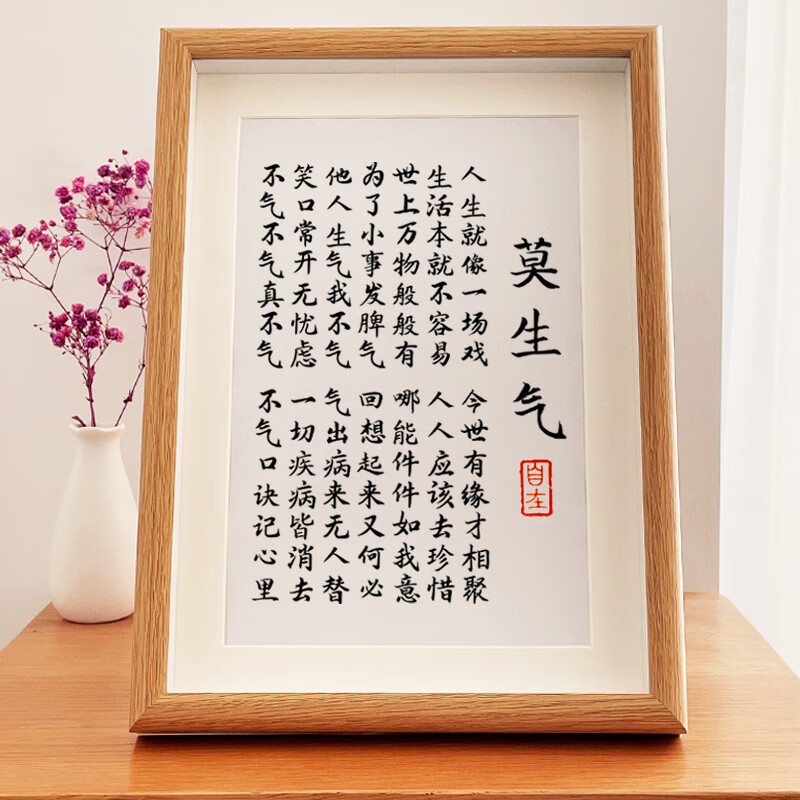 莫生气
自在
人生就像一场戏 今世有缘才相聚
生活本就不容易 人人应该去珍惜
世上万物般般有 哪能件件如我意
为了小事发脾气 回想起来又何必
他人生气我不气 气出病来无人替
笑口常开无忧虑 一切疾病皆消去
不气不气真不气 不气口诀记心里